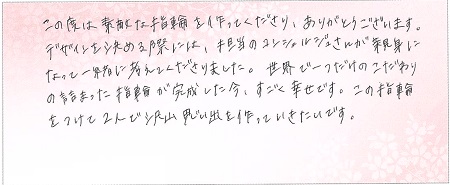 この度は素敵な指輪を作ってくださり、ありがとうございます。
デザインを決める際には、担当のコンシェルジュさんが親身に
なって一緒に考えてくださりました。世界で一つだけのこだわり
の詰まった指輪が完成した今、すごく幸せです。この指輪
をつけて2人で沢山思い出を作っていきたいです。